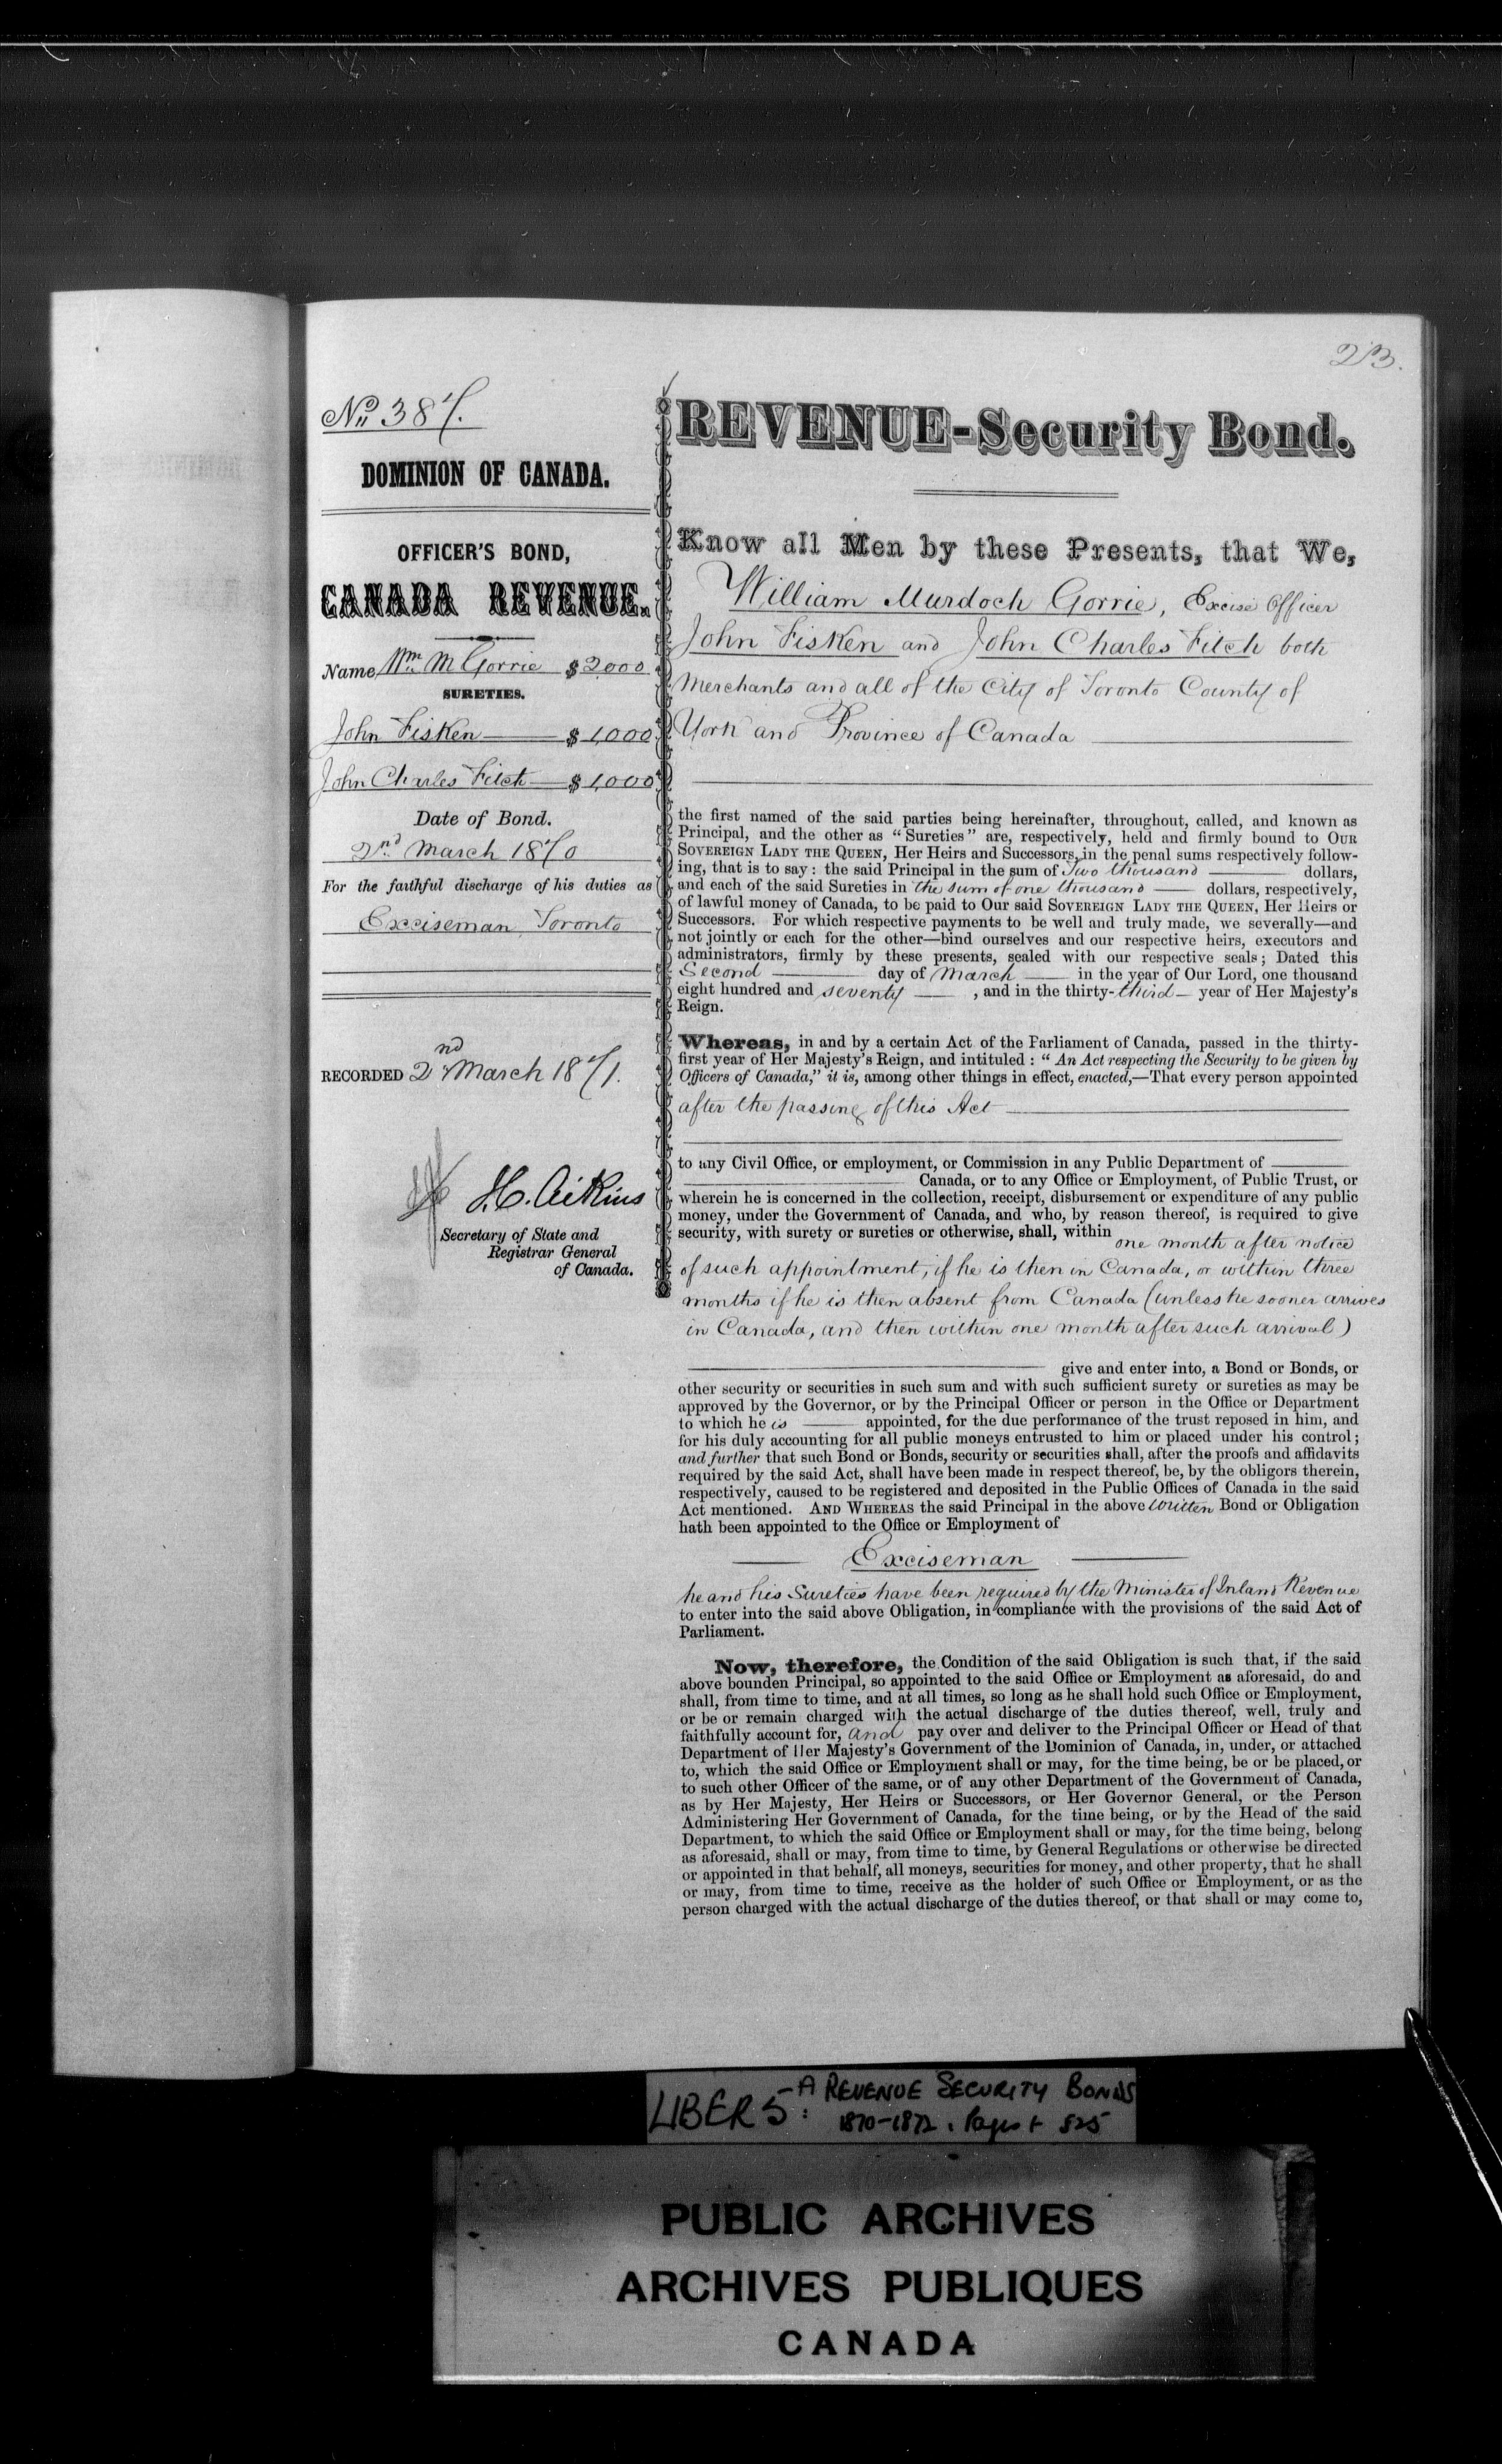 23.
No 387.
DOMINION OF CANADA.
OFFICER'S BOND,
CANADA REVENUE.
Name Wm M Gorrie $2000
SURETIES.
John Fisken $1,000
John Charles Fitch $1,000
Date of Bond.
2nd March 1870
For the faithful discharge of his duties as
Exciseman Toronto
RECORDED 2nd March 1871.
J.C. Aikins
Secretary of State and
Registrar General
of Canada.
REVENUE-Security Bond.
Know all Men by these Presents, that We,
William Murdoch Gorrie, Excise Officer
John Fisken and John Charles Fitch both
Merchants and all of the City of Toronto County of
York and Province of Canada
the first named of the said parties being hereinafter, throughout, called, and known as
Principal, and the other as "Sureties" are, respectively, held and firmly bound to OUR
SOVEREIGN LADY THE QUEEN, Her Heirs and Successors, in the penal sums respectively follow-
ing, that is to say: the said Principal in the sum of Two thousand dollars,
and each of the said Sureties in the sum of one thousand dollars, respectively,
of lawful money of Canada, to be paid to Our said SOVEREIGN LADY THE QUEEN, Her Heirs or
Successors. For which respective payments to be well and truly made, we severally—and
not jointly or each for the other—bind ourselves and our respective heirs, executors and
administrators, firmly by these presents, sealed with our respective seals; Dated this
Second day of March in the year of Our Lord, one thousand
eight hundred and seventy , and in the thirty-third year of Her Majesty's
Reign.
Whereas, in and by a certain Act of the Parliament of Canada, passed in the thirty-
first year of Her Majesty's Reign, and intituled: "An Act respecting the Security to be given by
Officers of Canada," it is, among other things in effect, enacted,—That every person appointed
after the passing of this Act
to any Civil Office, or employment, or Commission in any Public Department of
Canada, or to any Office or Employment, of Public Trust, or
wherein he is concerned in the collection, receipt, disbursement or expenditure of any public
money, under the Government of Canada, and who, by reason thereof, is required to give
security, with surety or sureties or otherwise, shall, within one month after notice
of such appointment, if he is then in Canada, or within three
months if he is then absent from Canada (unless he sooner arrives
in Canada, and then within one month after such arrival)
give and enter into, a Bond or Bonds, or
other security or securities in such sum and with such sufficient surety or sureties as may be
approved by the Governor, or by the Principal Officer or person in the Office or Department
to which he is appointed, for the due performance of the trust reposed in him, and
for his duly accounting for all public moneys entrusted to him or placed under his control;
and further that such Bond or Bonds, security or securities shall, after the proofs and affidavits
required by the said Act, shall have been made in respect thereof, be, by the obligors therein,
respectively, caused to be registered and deposited in the Public Offices of Canada in the said
Act mentioned. AND WHEREAS the said Principal in the above written Bond or Obligation
hath been appointed to the Office or Employment of
Exciseman
he and his Sureties have been required by the Minister of Inland Revenue
to enter into the said above Obligation, in compliance with the provisions of the said Act of
Parliament.
Now, therefore, the Condition of the said Obligation is such that, if the said
above bounden Principal, so appointed to the said Office or Employment as aforesaid, do and
shall, from time to time, and at all times, so long as he shall hold such Office or Employment,
or be or remain charged with the actual discharge of the duties thereof, well, truly and
faithfully account for, and pay over and deliver to the Principal Officer or Head of that
Department of Her Majesty's Government of the Dominion of Canada, in, under, or attached
to, which the said Office or Employment shall or may, for the time being, be or be placed, or
to such other Officer of the same, or of any other Department of the Government of Canada,
as by Her Majesty, Her Heirs or Successors, or Her Governor General, or the Person
Administering Her Government of Canada, for the time being, or by the Head of the said
Department, to which the said Office or Employment shall or may, for the time being, belong
as aforesaid, shall or may, from time to time, by General Regulations or otherwise be directed
or appointed in that behalf, all moneys, securities for money, and other property, that he shall
or may, from time to time, receive as the holder of such Office or Employment, or as the
person charged with the actual discharge of the duties thereof, or that shall or may come to,
LIBER 5-A: REVENUE SECURITY BONDS
1870-1872. Pages 525
PUBLIC ARCHIVES
ARCHIVES PUBLIQUES
CANADA